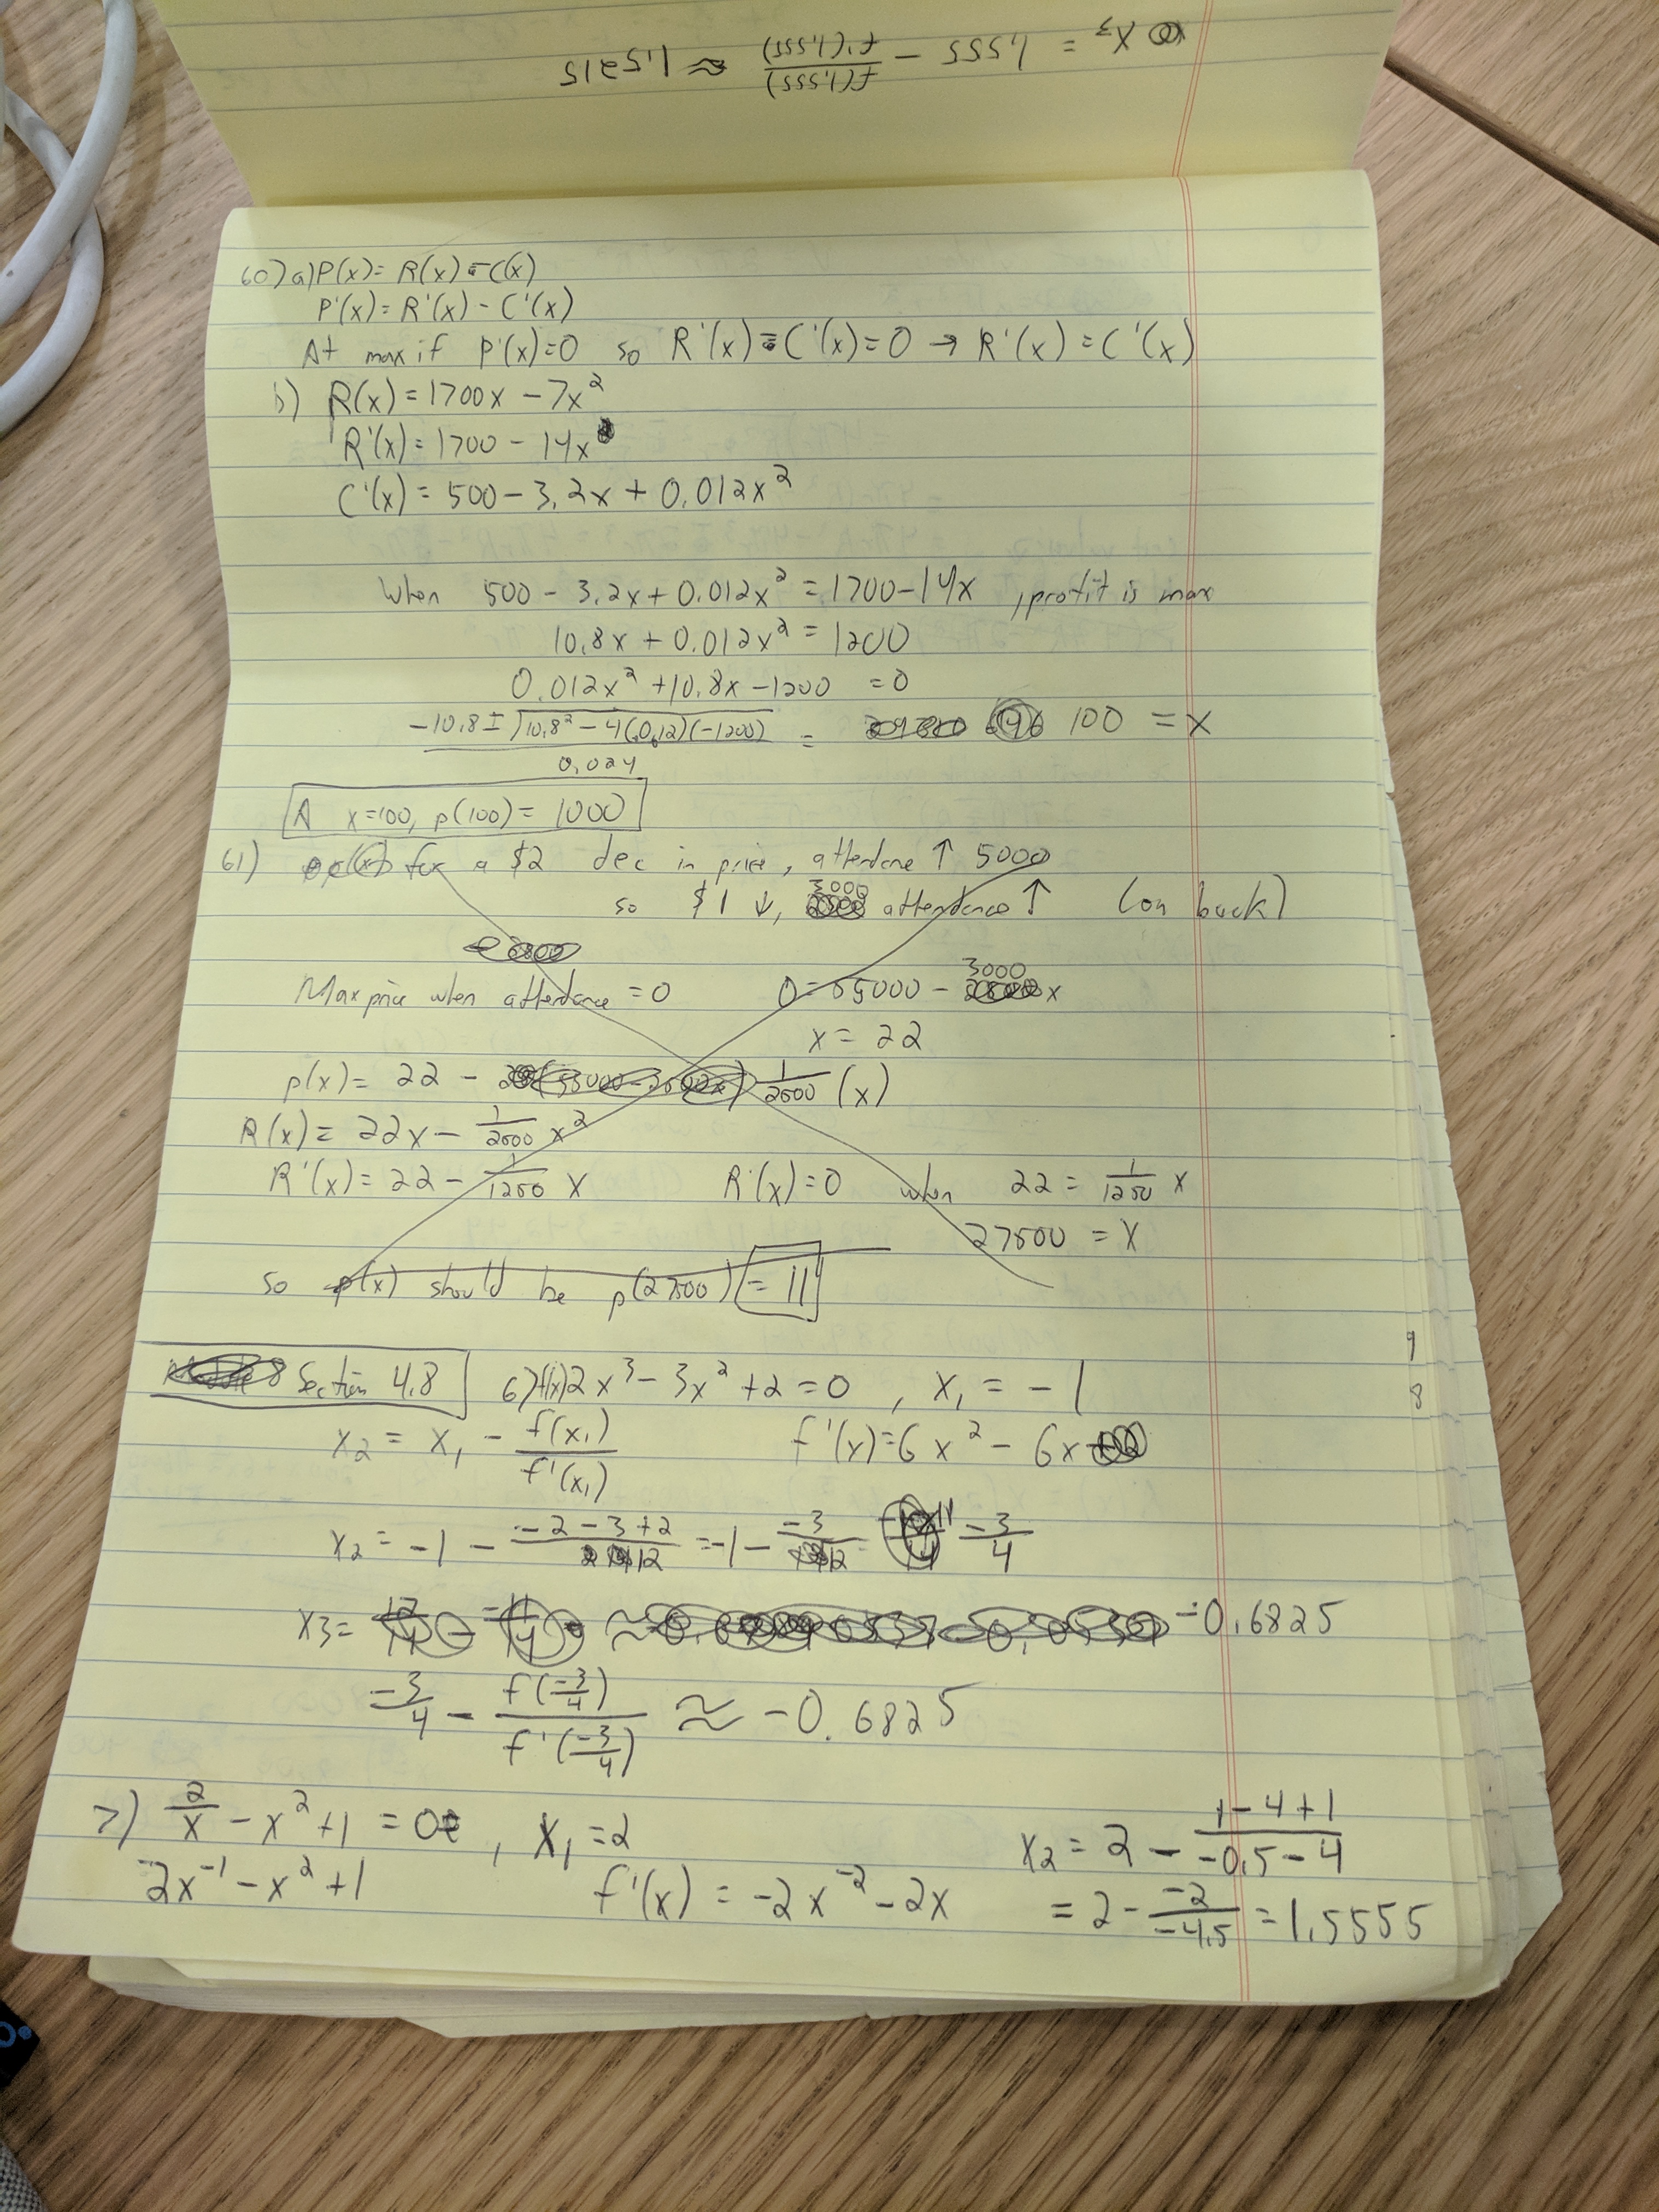 x₃ = 1.555 - f(1.555)/f'(1.555) ≈ 1.5215
60) a) P(x) = R(x) - C(x)
P'(x) = R'(x) - C'(x)
At max if P'(x)=0 so R'(x) = C'(x) = 0 → R'(x) = C'(x)
b) R(x) = 1700x - 7x²
R'(x) = 1700 - 14x
C'(x) = 500 - 3.2x + 0.012x²
When 500 - 3.2x + 0.012x² = 1700 - 14x , profit is max
10.8x + 0.012x² = 1200
0.012x² + 10.8x - 1200 = 0
-10.8 ± √(10.8² - 4(.012)(-1200)) / 0.024 = 100 = x
A x=100, p(100) = 1000
61) for a $2 dec in price, attendance ↑ 5000
so $1 ↓, 3000 attendance ↑ (on back)
Max price when attendance = 0 0 = 55000 - 3000 x
x = 22
p(x) = 22 - 1/2500 (x)
R(x) = 22x - 1/2500 x²
R'(x) = 22 - 1/1250 x R'(x) = 0 when 22 = 1/1250 x
27500 = x
so p(x) should be p(27500) = 11
9
8
Section 4.8 6) f(x) 2x³ - 3x² + 2 = 0 , x₁ = -1
x₂ = x₁ - f(x₁)/f'(x₁) f'(x) = 6x² - 6x
x₂ = -1 - (-2 - 3 + 2)/12 = -1 - -3/12 -3/4
x₃ = -0.6825
-3/4 - f(-3/4)/f'(-3/4) ≈ -0.6825
7) 2/x - x² + 1 = 0 , x₁ = 2 x₂ = 2 - (1 - 4 + 1)/(-0.5 - 4)
2x⁻¹ - x² + 1 f'(x) = -2x⁻² - 2x = 2 - -2/-4.5 = 1.5555